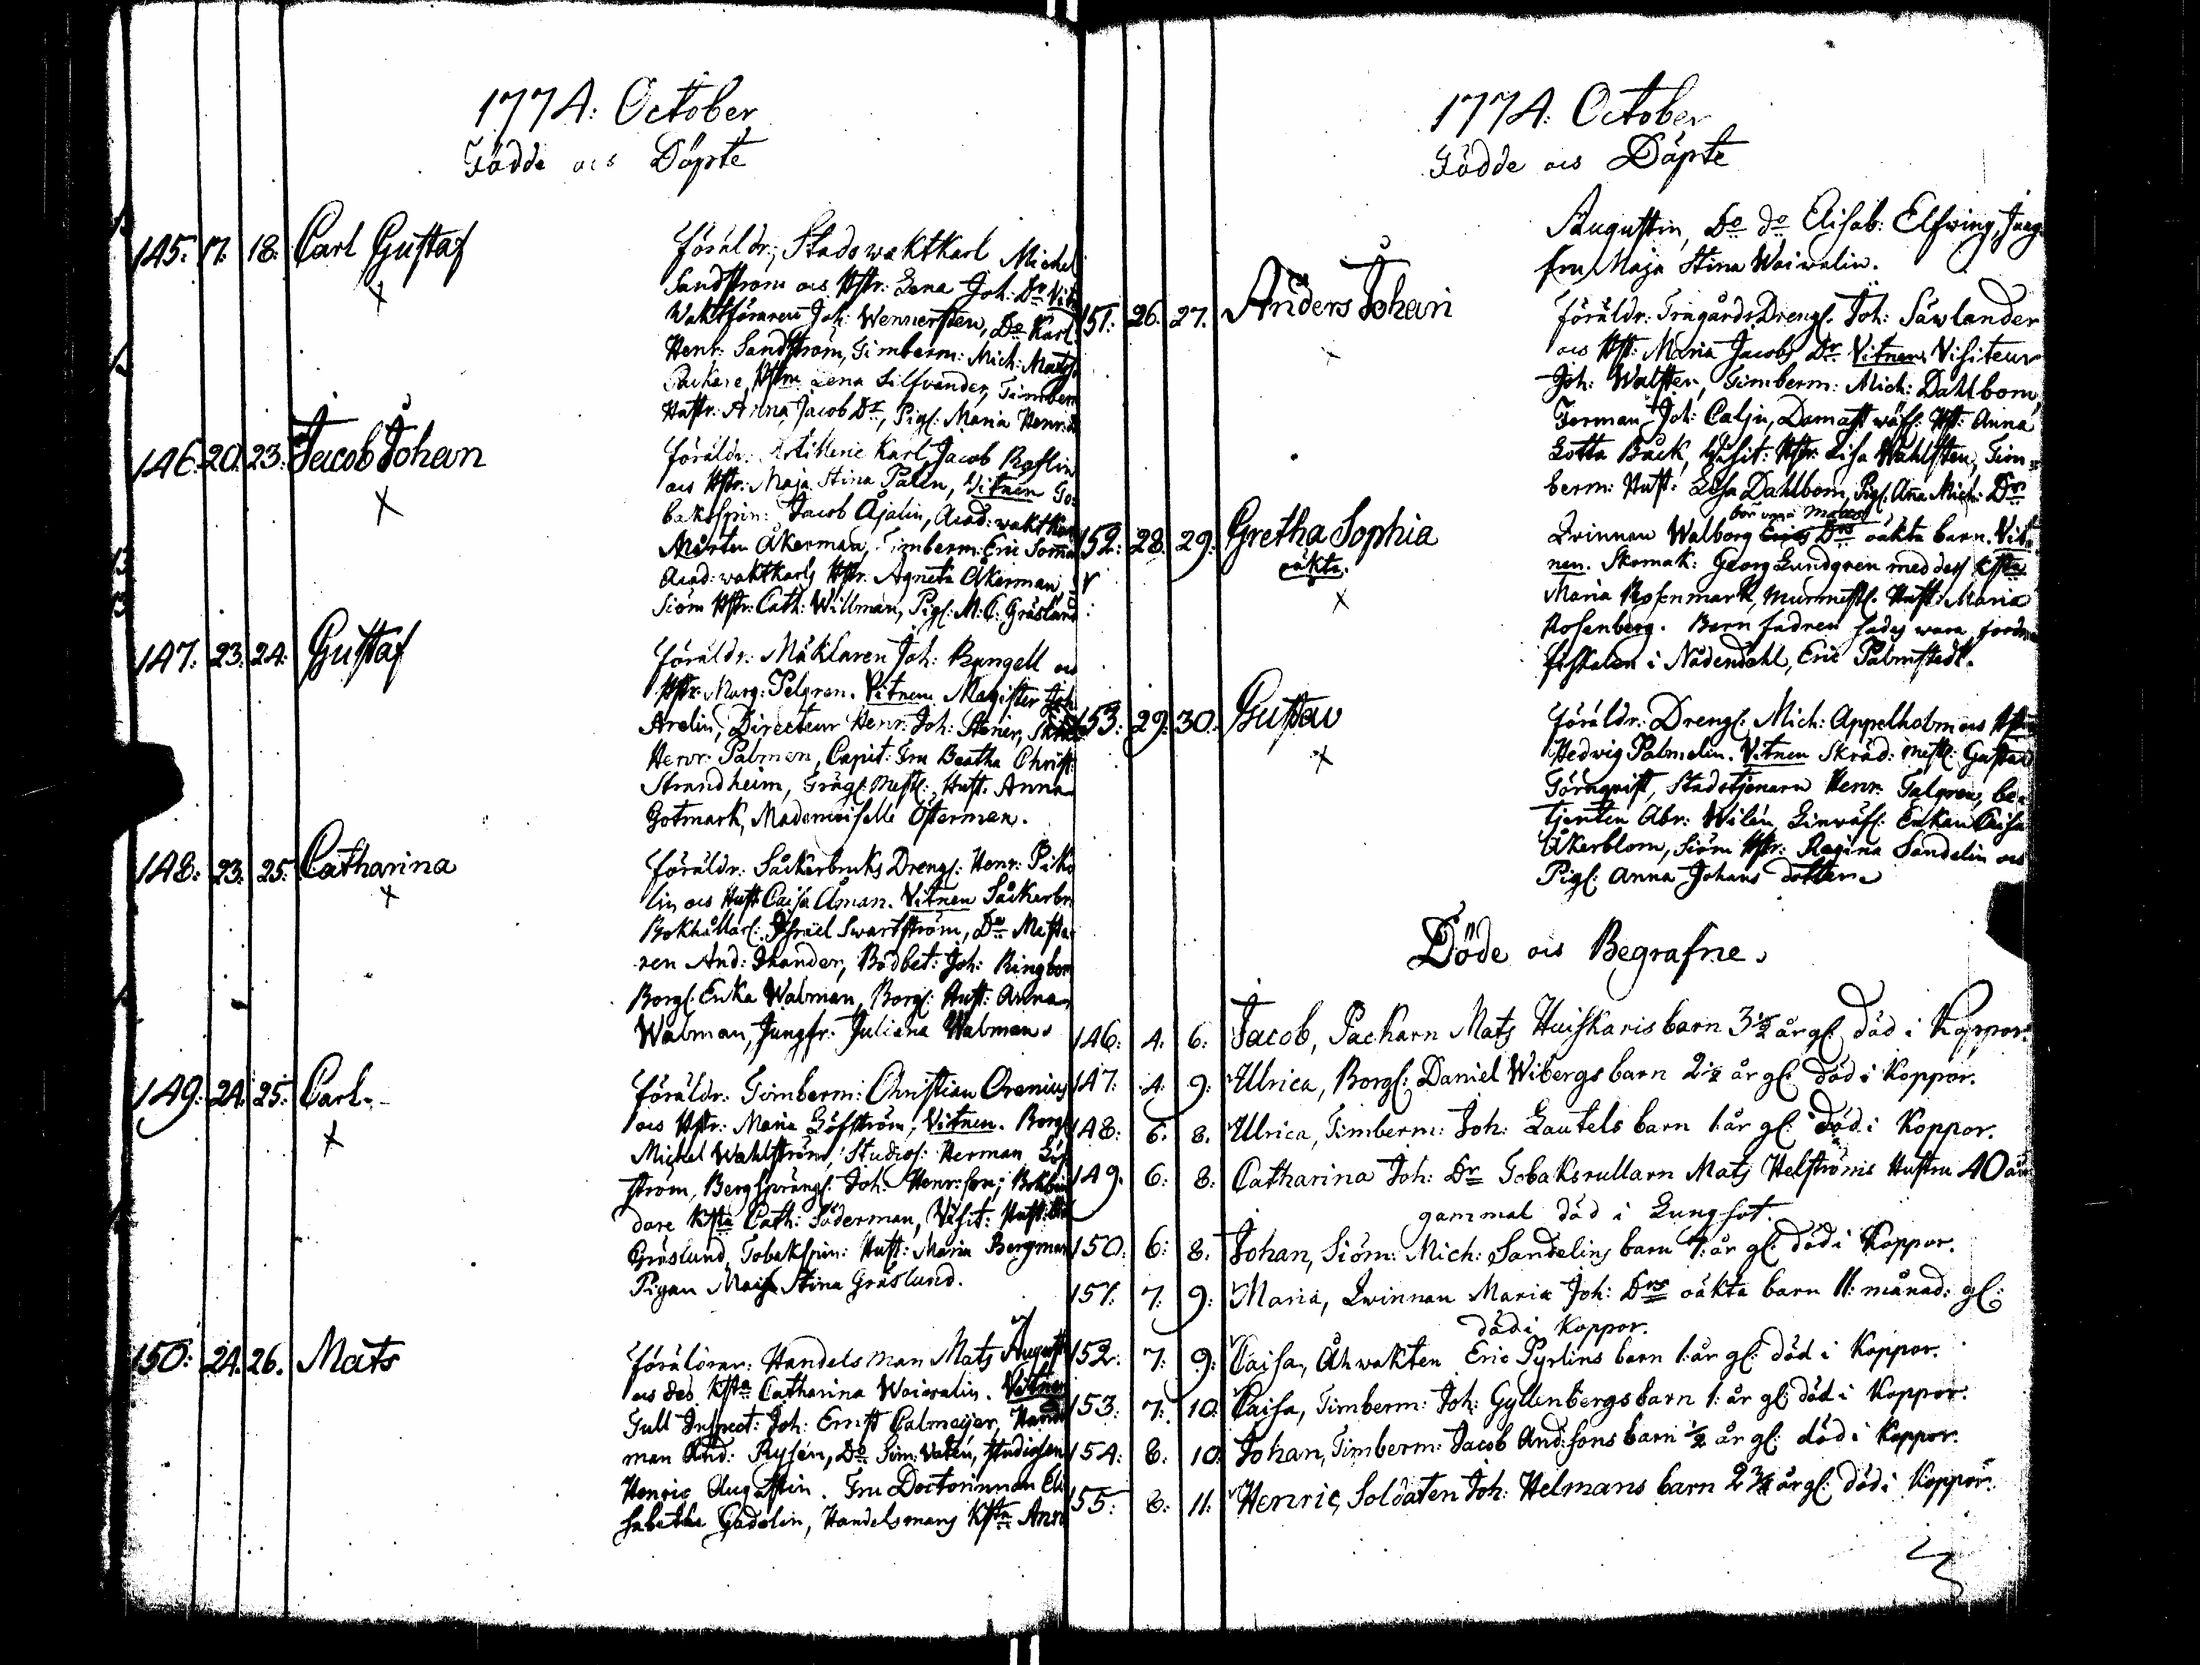 1774: October
Födde ocs Döpte
145: 17. 18: Carl Gustaf
föräldr; Stadswaktkarl Michel
Sandström ocs Hstr: Lena Joh: Dr Vitn
Waktföraren Joh: Wennersten, Do Karl
Henr: Sandström, Timberm: Mich: Mats
Packare, Hstru Lena Silfvander, Timberm
Hustr: Anna Jacob Dr, Pigs: Maria Henr:
146: 20. 23: Jacob Johan
föräldr: Artillerie Karl Jacob Roslin
ocs Hstr: Maja Stina Palin, Vitnen To-
baksspin: Jacob Åjalin, Acad: waktkarl
Mårten Åkerman, Timberm: Eric
Acad: waktkarls Hstr: Agneta Åkerman,
Siöm Hstr: Cath: Willman, Pigs: M: C: Gräslund
147: 23: 24: Gustaf
föräldr: Mäklaren Joh: Bangell ocs
Hstr: Marg: Pelgren. Vitnen Magister Joh
Arelin, Directeur Henr: Joh: Stenier,
Henr: Palmen, Capit: Fru Beatha Christ:
Strandheim, Trägs: Mest: Hust. Anna
Gotmark, Mademoiselle Österman.
148: 23. 25: Catharina
föräldr: Såckerbruks Drengs: Henr: Piko
lin ocs Hust Caisa Åman. Vitnen Såckerbr
Bokhållar: Israel Swartström, Do Mästa-
ren And: Ikonder, Bodbet: Joh: Ringbom
Borgs: Enka Walman, Borgs: Hust: Anna
Walman, Jungfr: Juliana Walman.
149: 24: 25: Carl.
föräldr: Timberm: Christian Orenius
ocs Hstr: Maria Löfström, Vitnen. Borgs
Michel Wahlström, Studios: Herman Löf
ström, Bergsprängs: Joh: Henr:son; Bokbin
dare Hsta Cath: Söderman, Visit: Hust:
Gräslund, Tobaksspin: Hust: Maria Bergman
Pigan Maja Stina Gräslund.
150: 24. 26. Mats
föräldrar: Handelsman Mats August
ocs des Hsta Catharina Waiwalin. Vitnen
Tull Inspect: Joh: Ernst Calmeijer, Hand
man And: Rysén, Do Sim: Valén, studiosen
Henric Augustin. Fru Doctorinnan Eli
sabetha Gadolin, Handelsmans Hsta Ann
1774: October
Födde ocs Döpte
Augustin, Do do Elisab: Elfwing, Jung-
fru Maja Stina Waiwalin.
151: 26. 27. Anders Johan
föräldr: Trägårds Drengs: Joh: Säwlander
ocs Hst: Maria Jacobs Dr. Vitnen Visiteur
Joh: Walsten, Timberm: Mich: Dahlbom,
Forman Joh: Calju, Damast wäfs: Hst: Anna
Lotta Bäck, Visit: Hstr: Lisa Wahlsten, Tim-
berm: Hust: Lisa Dahlbom, Pigs: Ana Mich: Dr
152: 28. 29: Gretha Sophia
oäkta.
bör vara Mats
Qvinnan Walborg Erics Drs oäkta barn. Vit-
nen. Skomak: Georg Lundgren med dess Hsta
Maria Rosenmark, Murmest: Hust: Maria
Rosenberg. Barnfadren sades wara fordna
fiskalen i Nådendahl, Eric Palmstedt.
153: 29: 30: Gustav
föräldr: Drengs: Mich: Appelholm ocs Hstru
Hedwig Palmelin. Vitnen Skräd: Mest: Gustav
Törnqvist, Stadstjenarn Henr: Talgren, be-
tjenten Abr: Wilén Linwäfs: Enkan Caisa
Åkerblom, Siöm Hstr: Regina Sandelin ocs
Pigs: Anna Johans dotter.
Döde ocs Begrafne.
146: 4: 6: Jacob, Packarn Mats Huiskaris barn 3½ år gl: död i Koppor.
147: 4: 9: Ulrica, Borgs: Daniel Wibergs barn 2½ år gl: död i Koppor.
148: 6: 8. Ulrica, Timberm: Joh: Lautels barn 1: år gl: död i Koppor.
149. 6: 8: Catharina Joh: Dr Tobaksrullarn Mats Helströms Hustru 40 års
gammal död i Lungsot.
150: 6: 8. Johan, Siöm: Mich: Sandelins barn 7: år gl: död i Koppor.
151: 7: 9: Maria, Qvinnan Maria Joh: Drs oäkta barn 11: månad: gl:
död i Koppor.
152: 7: 9: Caisa, Åhwakten Eric Pyrlins barn 1: år gl: död i Koppor.
153: 7: 10: Caisa, Timberm: Joh: Gyllenbergs barn 1: år gl: död i Koppor.
154: 8: 10 Johan, Timberm: Jacob And:sons barn ½ år gl: död i Koppor.
155: 8: 11: Henric, Soldaten Joh: Helmans barn 2¾ år gl: död i Koppor.